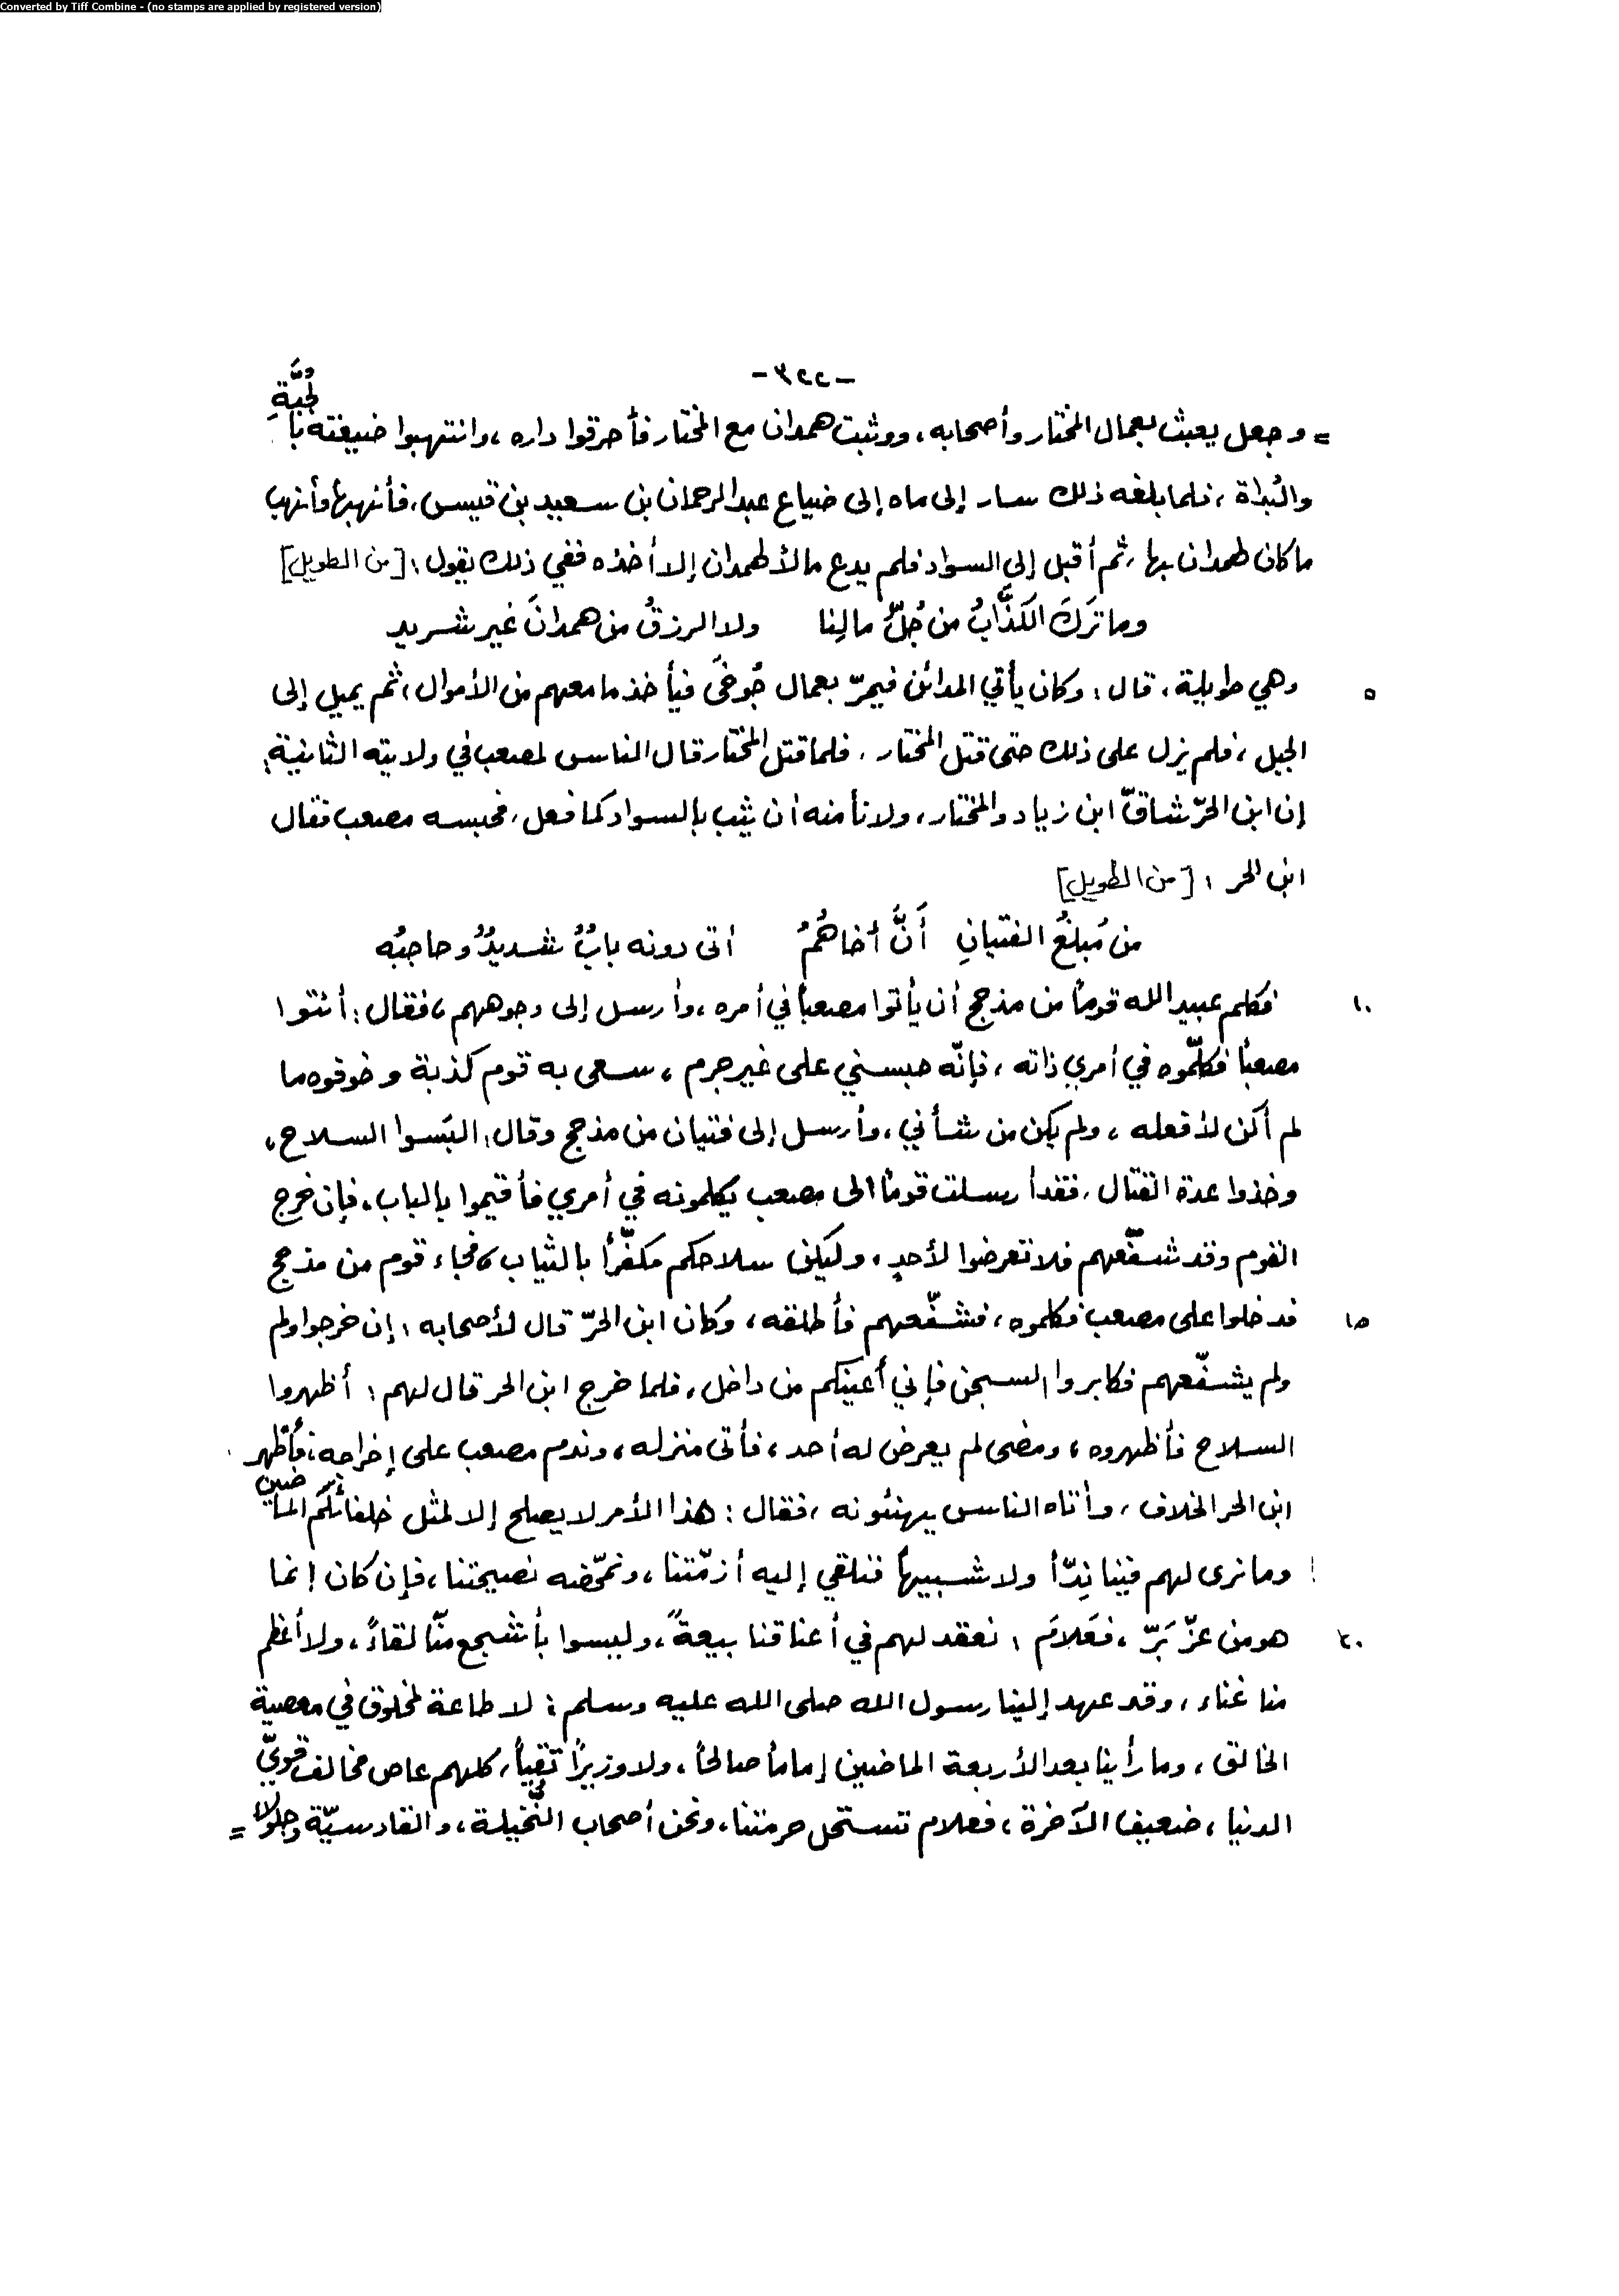 Converted by Tiff Combine - (no stamps are applied by registered version)
-٣٢٢-
= وجعل يعبث بعمال المختار وأصحابه، ووثبت همدان مع المختار فأحرقوا داره، وانتهبوا ضيعته بالجُبَّةِ
والبُداة، فلما بلغه ذلك سار إلى ماه إلى ضياع عبد الرحمان بن سعيد بن قيس، فأنهبها وأنهب
ما كان لهمدان بها، ثم أقبل إلى السواد فلم يدع مالاً لهمدان إلا أخذه ففي ذلك يقول: [من الطويل]
وما تَرَكَ الكَذَّابُ من جُلِّ مالِنا ولا الرزقُ من همدانَ غير شريد
٥ وهي طويلة، قال: وكان يأتي المدائن فيمرّ بعمال جُوخَى فيأخذ ما معهم من الأموال، ثم يميل إلى
الجبل، فلم يزل على ذلك حتى قتل المختار، فلما قتل المختار قال الناس لمصعب في ولايته الثانية:
إن ابن الحرّ شاقّ ابن زياد والمختار، ولا نأمنه أن يثب بالسواد كما فعل، فحبسه مصعب فقال
ابن الحر: [من الطويل]
من مُبلغُ الفتيانِ أَنَّ أخاهُمُ أتى دونه بابٌ شديدٌ وحاجبُه
١٠ فكلم عبيد الله قوماً من مذحج أن يأتوا مصعباً في أمره، وأرسل إلى وجوههم، فقال: أئتوا
مصعباً فكلّموه في أمري ذاته، فإنّه حبسني على غير جرم، سعى به قوم كذبة وخوفوه ما
لم أكن لأفعله، ولم يكن من شأني، وأرسل إلى فتيان من مذحج وقال: البَسوا السلاح،
وخذوا عدة القتال، فقد أرسلت قوماً الى مصعب يكلمونه في أمري فأقيموا بالباب، فإن خرج
القوم وقد شفّعهم فلا تعرضوا لأحدٍ، وليكن سلاحكم مكفّراً بالثياب، فجاء قوم من مذحج
١٥ فدخلوا على مصعب فكلموه، فشفّعهم فأطلقه، وكان ابن الحرّ قال لأصحابه: إن خرجوا ولم
ولم يشفّعهم فكابروا السجن فإني أُعينكم من داخل، فلما خرج ابن الحر قال لهم: أظهروا
السلاح فأظهروه، ومضى لم يعرض له أحد، فأتى منزله، وندم مصعب على إخراجه، فأظهر
ابن الحر الخلاف، وأتاه الناس يهنئونه، فقال: هذا الأمر لا يصلح إلا لمثل خلفائكم الماضين
وما نرى لهم فينا نِدّاً ولا شبيهاً فنلقي إليه أزمّتنا، ونمحّضه نصيحتنا، فإن كان إنما
٢٠ هو من عزّ بَزّ، فعَلامَ، نعقد لهم في أعناقنا بيعةً، وليسوا بأشجع منّا لقاءً، ولا أعظم
منا غناء، وقد عهد إلينا رسول الله صلى الله عليه وسلم: لا طاعة لمخلوق في معصية
الخالق، وما رأينا بعد الأربعة الماضين إماماً صالحاً، ولا وزيراً تقياً، كلهم عاص مخالف قويّ
الدنيا، ضعيف الآخرة، فعلام تستحل حرمتنا، ونحن أصحاب النُّخَيلة، والقادسيّة وجلولاء =